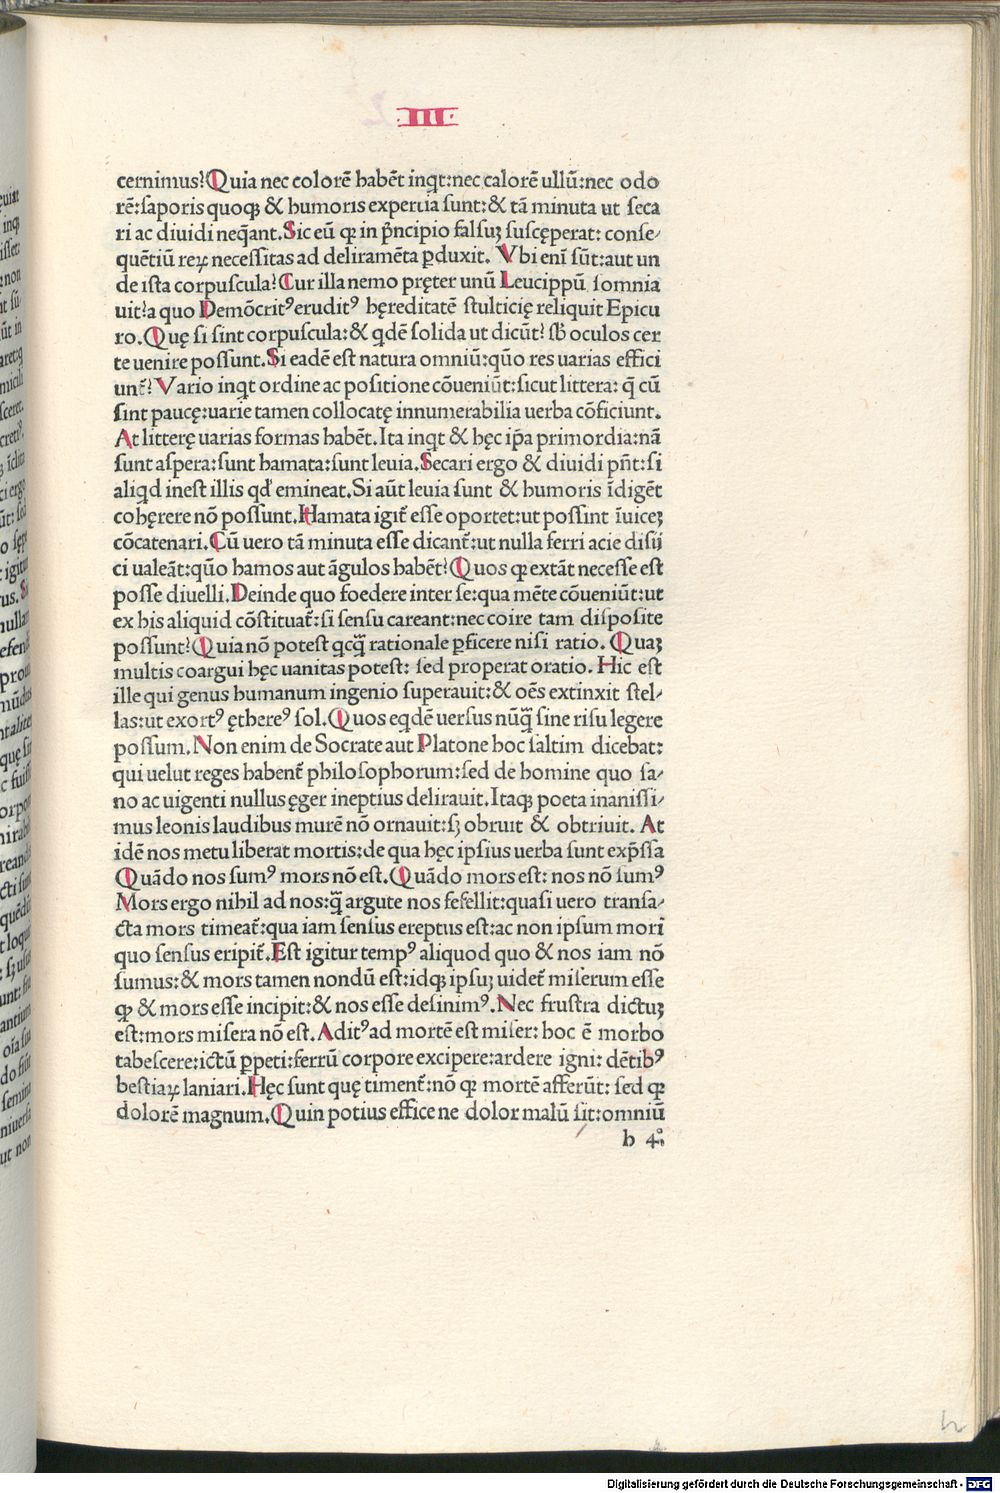 ·III·
cernimus? Quia nec colorē habēt inqt: nec calorē ullū: nec odo
rē: saporis quoqꝫ & humoris expertia sunt: & tā minuta ut seca
ri ac diuidi neq̄ant. Sic eū ꝙ in p̄ncipio falsuꝫ suscęperat: conse⸗
quētiū reꝝ necessitas ad deliramēta ꝑduxit. Vbi enī sūt: aut un
de ista corpuscula? Cur illa nemo pręter unū Leucippū somnia
uit? a quo Demōcritꝰ eruditꝰ hęreditatē stulticię reliquit Epicu
ro. Quę si sint corpuscula: & qdē solida ut dicūt? sb̄ oculos cer
te uenire possunt. Si eadē est natura omniū: qūo res uarias effici
unt̄? Vario inqt ordine ac positione cōueniūt: sicut littera: q̄ cū
sint paucę: uarie tamen collocatę innumerabilia uerba cōficiunt.
At litterę uarias formas habēt. Ita inqt & hęc ip̄a primordia: nā
sunt aspera: sunt hamata: sunt leuia. Secari ergo & diuidi pn̄t: si
aliqd inest illis qd' emineat. Si aūt leuia sunt & humoris īdigēt
cohęrere nō possunt. Hamata igit̄ esse oportet: ut possint īuiceꝫ
cōcatenari. Cū uero tā minuta esse dicant̄: ut nulla ferri acie disij
ci ualeāt: qūo hamos aut āgulos habēt? Quos ꝙ extāt necesse est
posse diuelli. Deinde quo foedere inter se: qua mēte cōueniūt: ut
ex his aliquid cōstituat̄: si sensu careant: nec coire tam disposite
possunt? Quia nō potest qcq̄ rationale ꝑficere nisi ratio. Quaꝫ
multis coargui hęc uanitas potest: sed properat oratio. Hic est
ille qui genus humanum ingenio superauit: & oēs extinxit stel⸗
las: ut exortꝰ ęthereꝰ sol. Quos eqdē uersus nūq̄ sine risu legere
possum. Non enim de Socrate aut Platone hoc saltim dicebat:
qui uelut reges habent̄ philosophorum: sed de homine quo sa⸗
no ac uigenti nullus ęger ineptius delirauit. Itaqꝫ poeta inanissi⸗
mus leonis laudibus murē nō ornauit: sꝫ obruit & obtriuit. At
idē nos metu liberat mortis: de qua hęc ipsius uerba sunt exp̄ssa
Quādo nos sumꝰ mors nō est. Quādo mors est: nos nō sumꝰ
Mors ergo nihil ad nos: q̄ argute nos fefellit: quasi uero transa⸗
cta mors timeat̄: qua iam sensus ereptus est: ac non ipsum mori
quo sensus eripit̄. Est igitur tempꝰ aliquod quo & nos iam nō
sumus: & mors tamen nondū est: idqꝫ ipsuꝫ uidet̄ miserum esse
ꝙ & mors esse incipit: & nos esse desinimꝰ. Nec frustra dictuꝫ
est: mors misera nō est. Aditꝰ ad mortē est miser: hoc ē morbo
tabescere: ictū ꝑpeti: ferrū corpore excipere: ardere igni: dētibꝰ
bestiaꝝ laniari. Hęc sunt quę timent̄: nō ꝙ mortē afferūt: sed ꝙ
dolorē magnum. Quin potius effice ne dolor malū sit: omniū
b 4
Digitalisierung gefördert durch die Deutsche Forschungsgemeinschaft - DFG